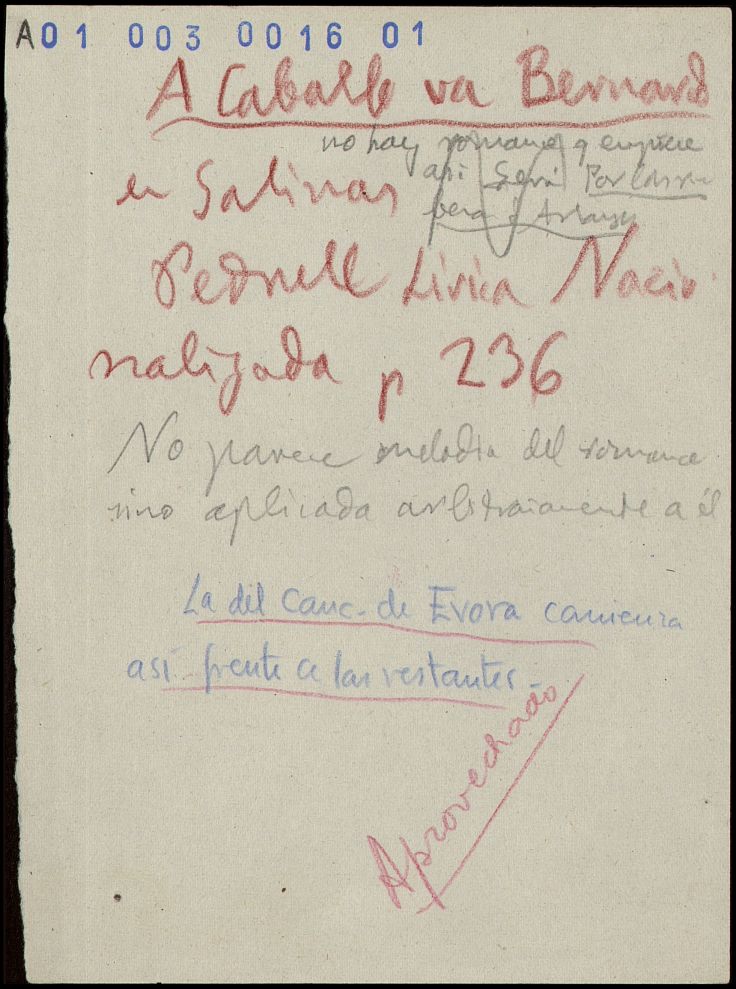 A01 003 0016 01
A Caballo va Bernardo
no hay romance q empiece
en Salinas
así Será Por las
de Arlanza
Pedrell Lírica Nacio
nalizada p 236
No parece melodia del romance
sino aplicada arbitrariamente a él
La del Canc. de Evora comienza
así frente a las restantes -
Aprovechado